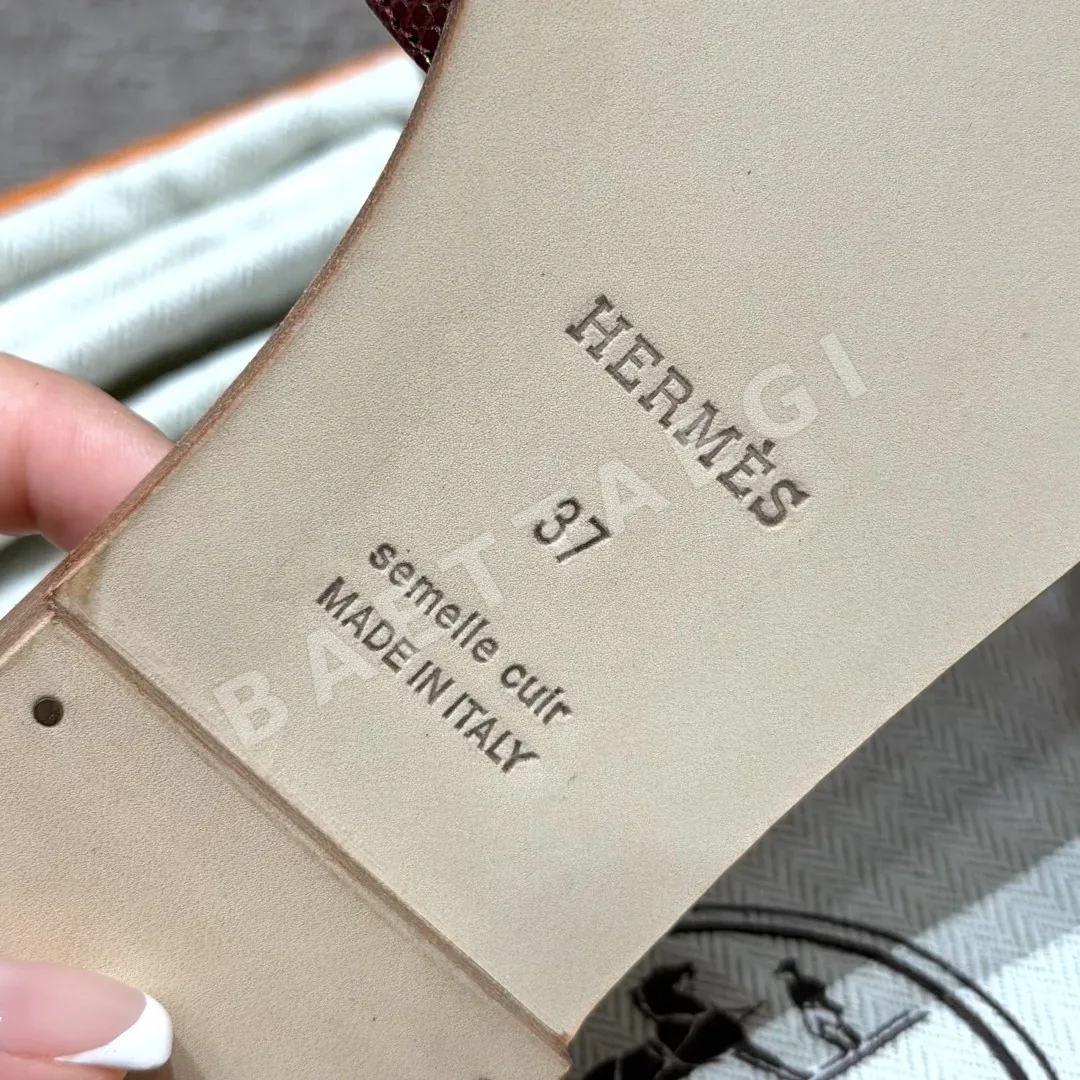 HERMÈS
37
semelle cuir
MADE IN ITALY
BAET AIGI